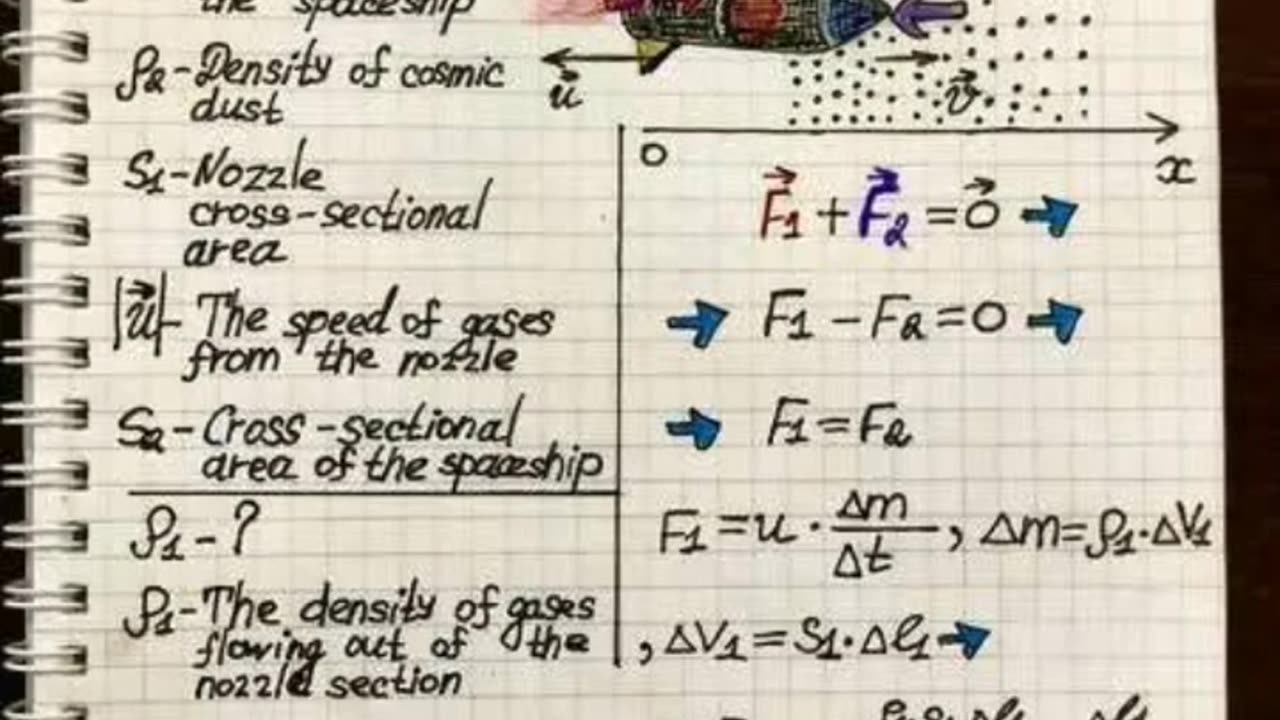 the spaceship
ρ2 - Density of cosmic
dust
S1 - Nozzle
cross-sectional
area
|u⃗| - The speed of gases
from the nozzle
S2 - Cross-sectional
area of the spaceship
ρ1 - ?
ρ1 - The density of gases
flowing out of the
nozzle section
u⃗
v⃗
0
x
F⃗1 + F⃗2 = 0⃗ ➡
➡ F1 - F2 = 0 ➡
➡ F1 = F2
F1 = u · Δm/Δt, Δm = ρ1 · ΔV1
, ΔV1 = S1 · Δℓ1 ➡